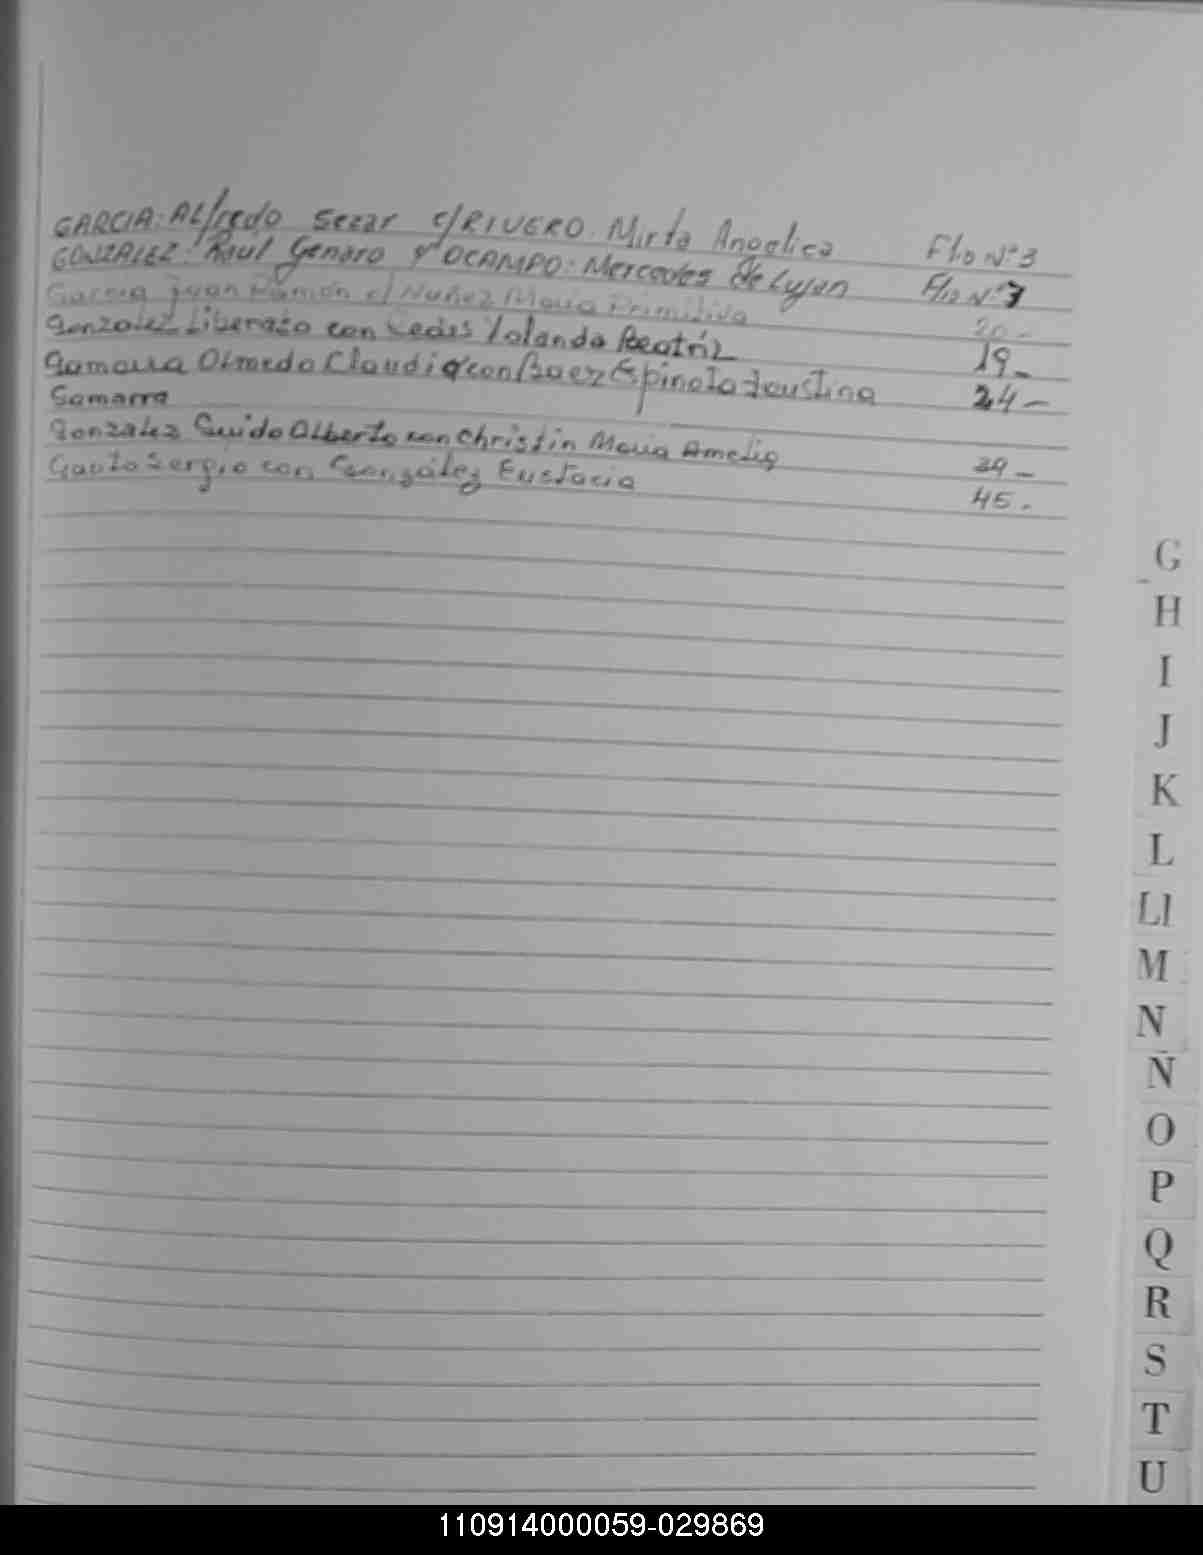 GARCIA: ALfredo Sezar c/RIVERO. Mirta Angelica Flio Nº3
GONZALEZ: Raul Genaro y OCAMPO: Mercedes de Lujan Flio Nº7
Garcia Juan Ramón c/ Nuñez Maria Primitiva 20-
Gonzalez Liberato con Ledes Yolanda Beatriz 19-
Gamarra Olmedo Claudia con Baez Espinola Faustina 24-
Gamarra
Gonzalez Guido Alberto con Christin Maria Amelia 39-
Gauto Sergio con González Eustacia 45-
G
H
I
J
K
L
Ll
M
N
Ñ
O
P
Q
R
S
T
U
110914000059-029869